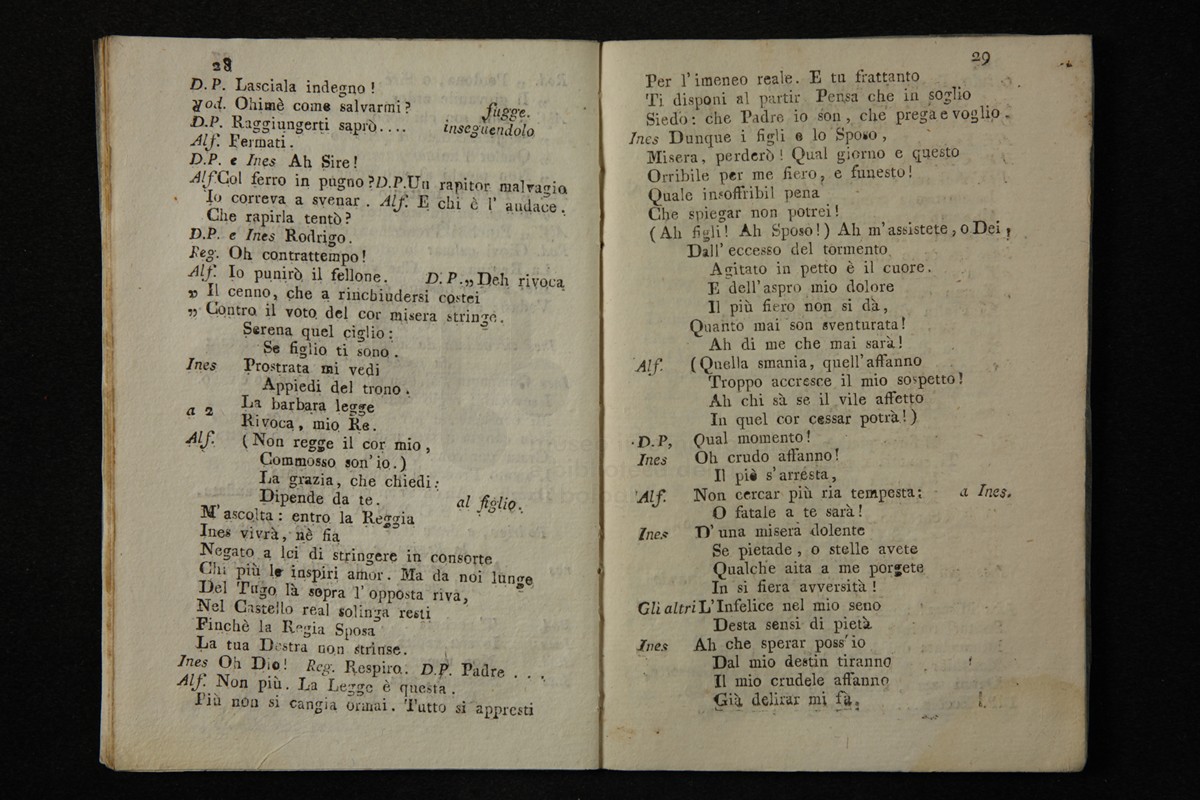 28
D.P. Lasciala indegno!
Rod. Ohimè come salvarmi? fugge.
D.P. Raggiungerti saprò.... inseguendolo
Alf. Fermati.
D.P. e Ines Ah Sire!
Alf. Col ferro in pugno? D.P. Un rapitor malvagio
Io correva a svenar. Alf. E chi è l' audace.
Che rapirla tentò?
D.P. e Ines Rodrigo.
Reg. Oh contrattempo!
Alf. Io punirò il fellone. D. P. „ Deh rivoca
„ Il cenno, che a rinchiudersi costei
„ Contro il voto del cor misera stringe.
Serena quel ciglio:
Se figlio ti sono.
Ines Prostrata mi vedi
Appiedi del trono.
a 2 La barbara legge
Rivoca, mio Re.
Alf. (Non regge il cor mio,
Commosso son'io.)
La grazia, che chiedi:
Dipende da te. al figlio.
M'ascolta: entro la Reggia
Ines vivrà, nè fia
Negato a lei di stringere in consorte
Chi più le inspiri amor. Ma da noi lunge
Del Tago là sopra l'opposta riva,
Nel Castello real solinga resti
Finchè la Regia Sposa
La tua Destra non strinse.
Ines Oh Dio! Reg. Respiro. D.P. Padre ...
Alf. Non più. La Legge è questa.
Più non si cangia ormai. Tutto si appresti
29
Per l'imeneo reale. E tu frattanto
Ti disponi al partir Pensa che in soglio
Siedo: che Padre io son, che prega e voglio.
Ines Dunque i figli e lo Sposo,
Misera, perderò! Qual giorno e questo
Orribile per me fiero, e funesto!
Quale insoffribil pena
Che spiegar non potrei!
(Ah figli! Ah Sposo!) Ah m'assistete, o Dei,
Dall'eccesso del tormento
Agitato in petto è il cuore.
E dell'aspro mio dolore
Il più fiero non si dà,
Quanto mai son sventurata!
Ah di me che mai sarà!
Alf. (Quella smania, quell'affanno
Troppo accresce il mio sospetto!
Ah chi sà se il vile affetto
In quel cor cessar potrà!)
D.P, Qual momento!
Ines Oh crudo affanno!
Il piè s'arresta,
Alf. Non cercar più ria tempesta: a Ines.
O fatale a te sarà!
Ines D'una misera dolente
Se pietade, o stelle avete
Qualche aita a me porgete
In si fiera avversità!
Gli altri L'Infelice nel mio seno
Desta sensi di pietà
Ines Ah che sperar poss'io
Dal mio destin tiranno
Il mio crudele affanno
Già delirar mi fa.